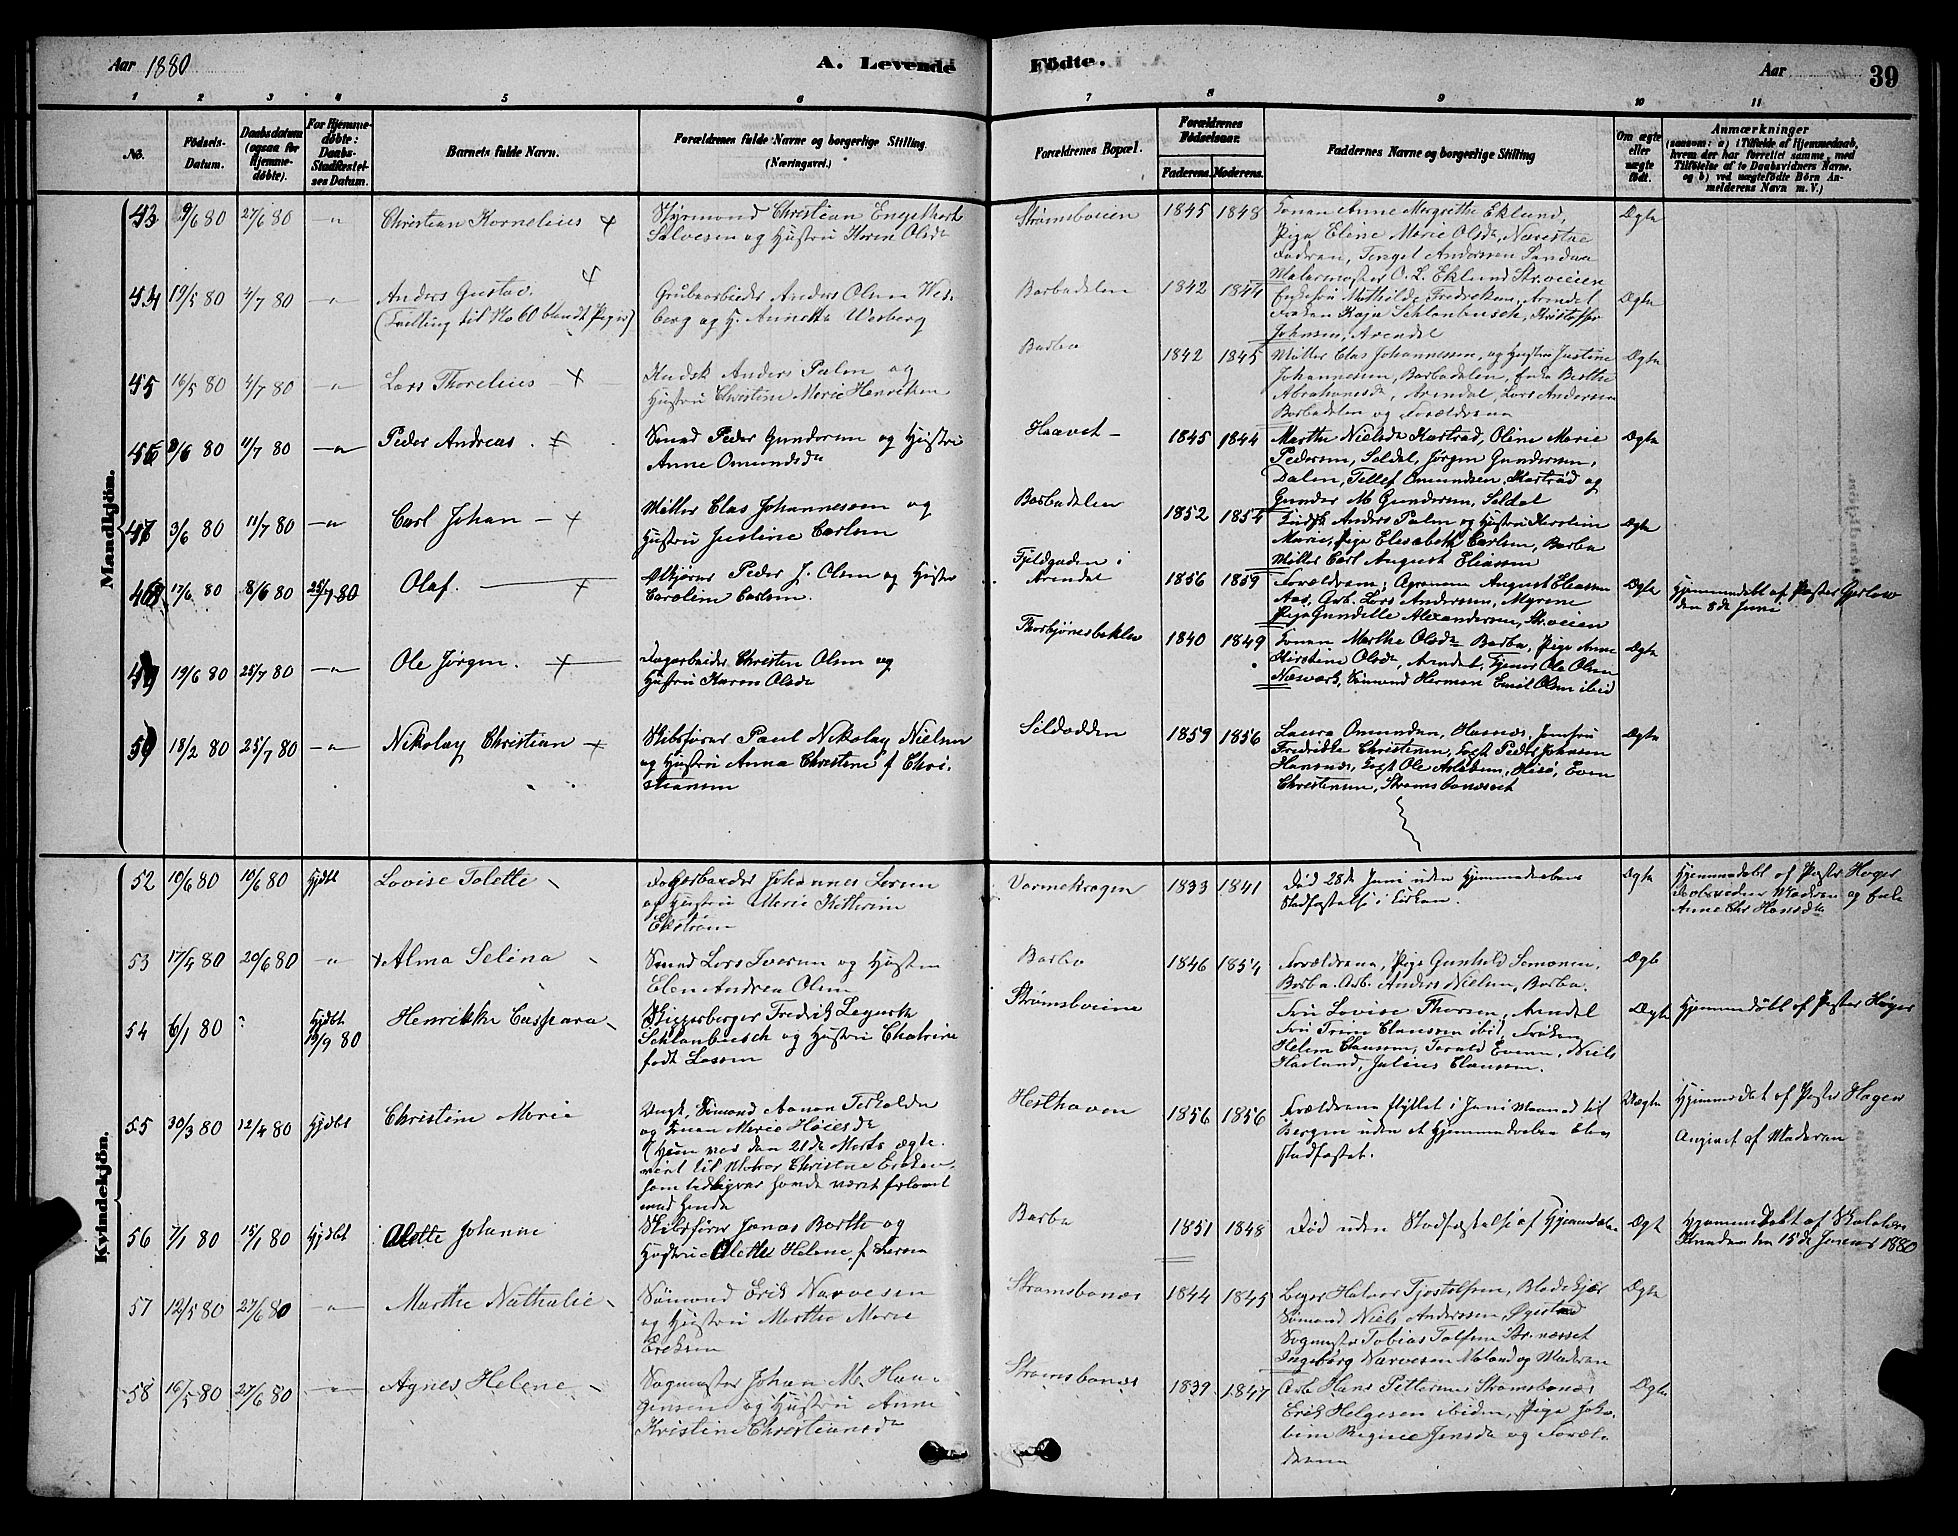 Aar 1880
A. Levende
Födte.
Aar
39
1 2 3 4 5 6 7 8 9 10 11
No.
Födsels-Datum.
Daabsdatum (ogsaa for Hjemme-döbte).
For Hjemme-döbte: Daabs-Stadfæstel-ses Datum.
Barnets fulde Navn.
Forældrenes fulde Navne og borgerlige Stilling (Næringsvei.)
Forældrenes Bopæl.
Forældrenes Födselsaar.
Faderens. Moderens.
Faddernes Navne og borgerlige Stilling
Om ægte eller uægte födt.
Anmærkninger
(saasom: a) i Tilfælde af Hjemmedaab, hvem der har forrettet samme, med Tilföielse af to Daabsvidners Navne, og b) ved uægtefödte Börn An-melderens Navn m. V.)
Mandkjön.
43 9/6 80 27/6 80 Christian Kornelius
Styrmand Christian Engelhart
Salvesen og Hustru Karen Olsdr
Strømsboeien 1845 1848
Konan Anne Margrethe Eklund,
Pige Elene Marie Olsdr, Næerstue
Malermester O. L. Eklund Str.veien
Ægte
44 19/5 80 4/7 80 Anders Gustav.
(Tvilling til No 60 blandt Piger)
Grubearbeider Anders Olsen Wes-
berg og H. Annette Wesberg
Barbudalen 1842 1844
Enkefru Mathilde Fredreksen, Arendal
Frøken Kaja Schlanbusch, Kristoffer
Johnsen, Arendal
Ægte
45 16/5 80 4/7 80 Lars Thorelius
Kudsk Anders Palm og
Hustru Christine Marie Henriksen
Barbu 1842 1845
Møller Clas Johannesen, og Hustru Justine
Johannesen, Barbudalen, Enke Berthe
Abrahamsdr, Arendal, Lars Andersen
Barbudalen og Forældrene
Ægte
46 2/6 80 4/7 80 Peder Andreas.
Smed Peder Gundersen og Hustru
Anne Omundsdr
Haavet 1845 1844
Marthe Nielsdr Karstad, Oline Marie
Pedersen, Soldal, Jørgen Gundersen,
Dalen, Tellef Omundsen, Karstad og
Gunder M Gundersen, Soldal
Ægte
47 3/6 80 11/7 80 Carl Johan
Møller Clas Johannessen og
Hustru Justine Carlsen
Barbudalen 1852 1854
Kudsk Anders Palm og Hustru Karoline
Marie, Pige Elisabeth Carlsen, Barbu
Møller Carl August Eliassen
Ægte
48 17/6 80 8/6 80 25/7 80 Olaf.
Peder J. Olsen og Hustru
Caroline Carlsen.
Fjeldgaden i
Arendal
1856 1859
Forældrene, Agronom August Eliassen
Aas, Arb. Lars Andersen, Myrene
Pige Gundille Alexandersen, Str.veien
Ægte
Hjemmedøbt af Pastor Gjerløw
den 8de Juni
49 19/6 80 25/7 80 Ole Jørgen.
Dagarbeider Christen Olsen og
Hustru Karen Olsdr
Thorbjønsbeklev 1840 1849
Konan Marthe Olsdr Barbu, Pige Anne
Kirstine Olsdr, Arendal, Tjener Ole Olsen
Næsværk, Sømand Herman Emil Olsen ibid
Ægte
50 18/2 80 25/7 80 Nikolay Christian
Skibsfører Paul Nikolay Nielsen
og Hustru Anna Christine f Chri-
stiansen
Sildodden 1859 1856
Laura Omundsen, Hasnæs, Jomfru
Fredrikke Christensen, Peder Johnsen
Hasnæs, Ole Aslaksen, Hisø, Even
Christensen, Strømsbonæsset
Ægte
Kvindekjön.
52 10/6 80 10/6 80 Hjdbt Lovise Tolette
Dagarbeider Johannes Larsen
og Hustru Marie Kathrine
Ekstrøm
Varmekragen 1833 1841
Død 28de Juni uden Hjemmedaabens
Stadfæstelse i Kirken.
Ægte
Hjemmedøbt af Pastor Høyer
Anne Chr Hansdr
53 17/4 80 20/6 80 Alma Selina
Smed Lars Iversen og Hustru
Elen Andrea Olsen
Barbu 1846 1854
Forældrene, Pige Gunhild Simonsen,
Barbu. Arb. Anders Nielsen, Barbu.
Ægte
54 6/1 80 Hjdbt 19/9 80 Henrikke Caspara
Skipperborger Fredrik
Schlanbusch og Hustru Chatrine
født Lassen
Strømsboeine
Fru Lovise Thorsen, Arendal
Fru Trine Claussen ibid, Frøken
Helene Claussen, Torvald Evensen, Niels
Haslund, Julius Claussen.
Ægte
Hjemmedøbt af Pastor Høyer
55 30/3 80 12/4 80 Hjdbt Christine Marie
Ungk. Sømand Aanon Terkelsen
og Konan Marie Høiesdr
(Hun var den 21de Marts ægte-
viet til Christne Eriksen,
som tidligere havde været forlovet
med hende
Hesthaven 1856 1856
Forældrene flyttet i Juni Maaned til
Bergen uden at Hjemmedaaben blev
stadfæstet.
Uægte
Hjemmedøbt af Pastor Høyer
Angivet af Moderen
56 7/1 80 15/1 80 Hjdbt Alette Johanne
Skibsfører Jonas Barth og
Hustru Alette Helene f. Larsen
Barbu 1851 1848
Død uden Stadfæstelse af Hjemmedaaben
Ægte
Hjemmedøbt af
den 15de Januar 1880
57 12/5 80 27/6 80 Marthe Nathalie
Sømand Erik Narvesen
og Hustru Marthe Marie
Eriksen
Strømsbonæs 1844 1845
Halvor Tjostolfsen, Blødekjær
Sømand Niels Anderssen, Øgistad
Sagmester Tobias Tolfsen Str. næsset
Ingeborg Narvesen Moland og Moderen
Ægte
58 16/5 80 27/6 80 Agnes Helene
Sagmester Johan M. Hau-
gensen og Hustru Anne
Kristine Christiansdr
Strømsbonæs 1839 1847
Arb Hans Pettersen Strømsbonæs
Erik Helgesen ibiden, Pige Jako-
bine Regine Jensdr og Foræl-
drene
Ægte